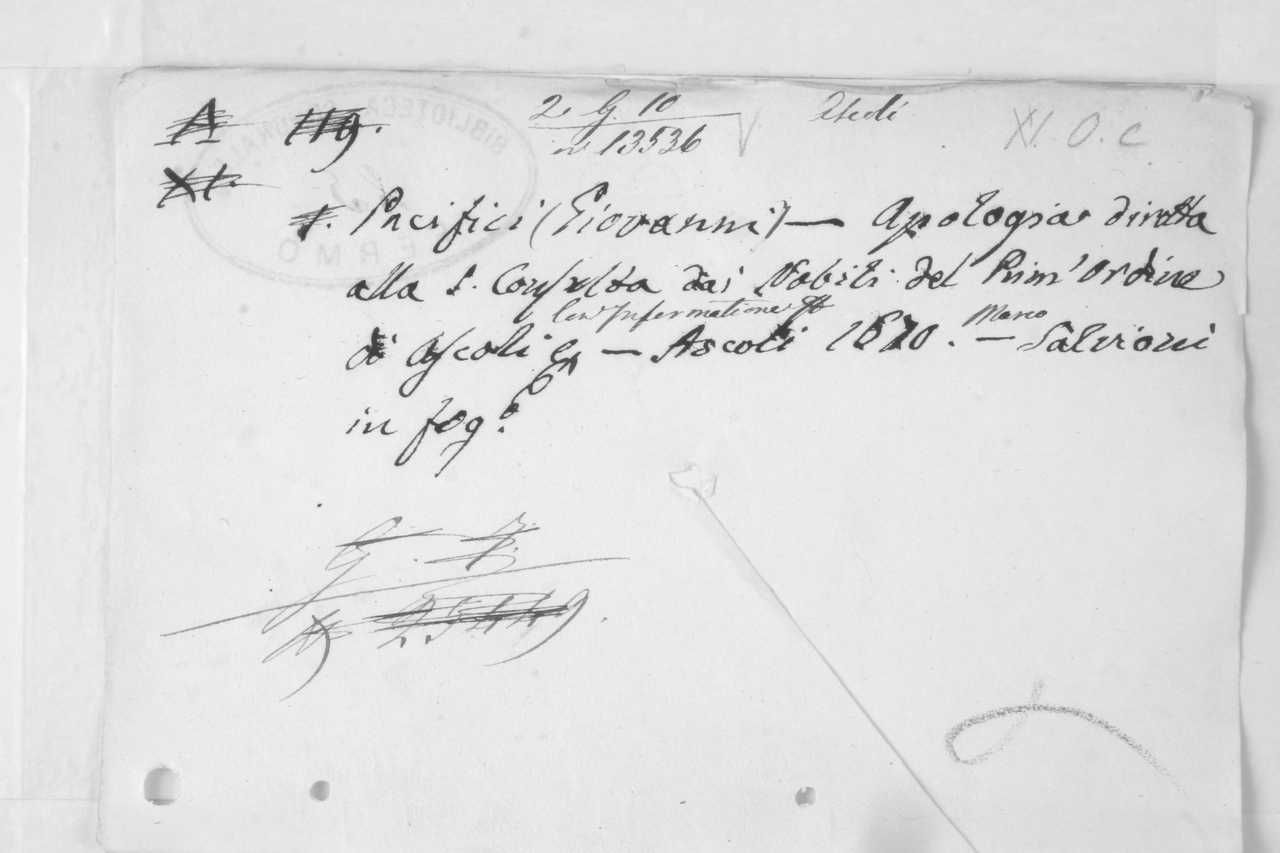 A 119. 2. G. 10 Vedi XI. O. c
XI. n. 13536
Pacifici (Giovanni) — Apologia diretta
alla S. Consulta dai Nobili del Prim' Ordine
con Informatione
di Ascoli — Ascoli 1670. — Marco Salvioni
in fog.°
G. 7.
N 25449.
BIBLIOTECA COMUNALE
FERMO